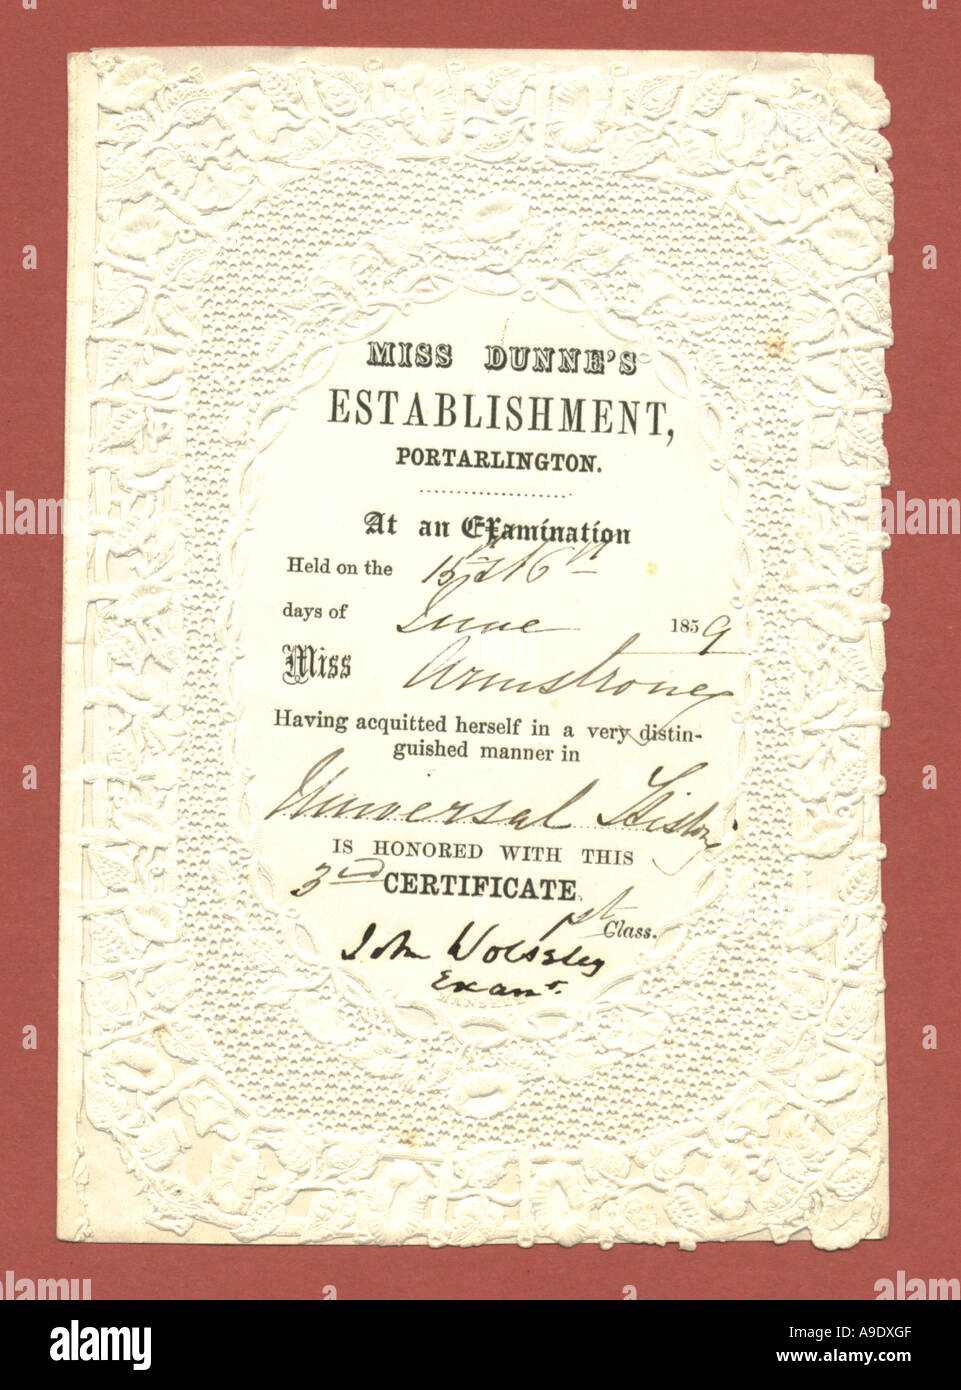 MISS DUNNE'S
ESTABLISHMENT,
PORTARLINGTON.
At an Examination
Held on the 15th & 16th
days of June 1859
Miss Armstrong
Having acquitted herself in a very distin-
guished manner in
Universal History
IS HONORED WITH THIS
3rd CERTIFICATE
1st Class.
John Wolseley
Examr.
MANSELL
alamy
Image ID: A9DXGF
www.alamy.com